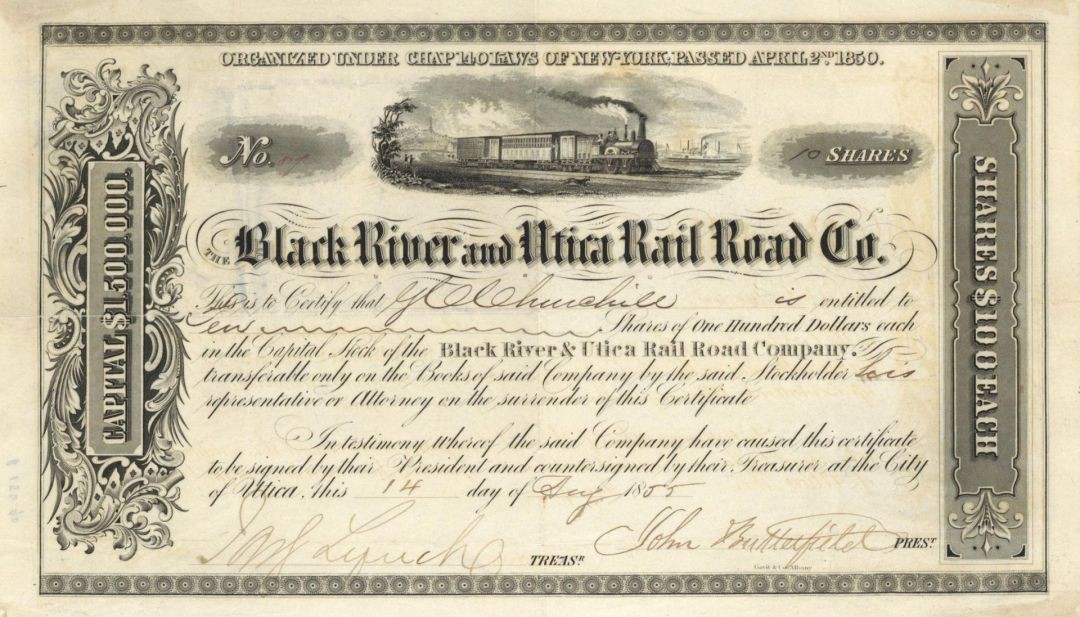 ORGANIZED UNDER CHAP 140 LAWS OF NEW-YORK, PASSED APRIL 2ND 1850.
No.
10 SHARES
THE Black River and Utica Rail Road Co.
This is to Certify that Churchill is entitled to
Ten Shares of One Hundred Dollars each
in the Capital Stock of the Black River & Utica Rail Road Company.
transferable only on the Books of said Company by the said Stockholder his
representative or Attorney on the surrender of this Certificate
In testimony whereof the said Company have caused this certificate
to be signed by their President and countersigned by their Treasurer at the City
of Utica, this 14 day of Aug 1855
Lynch TREASR.
John Butterfield PREST.
Gavit & Co. Albany
CAPITAL $1,500,000.
SHARES $100 EACH